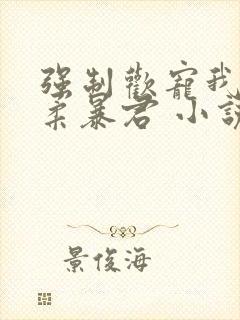 强制歡寵我
柔暴君 小說
景俊海